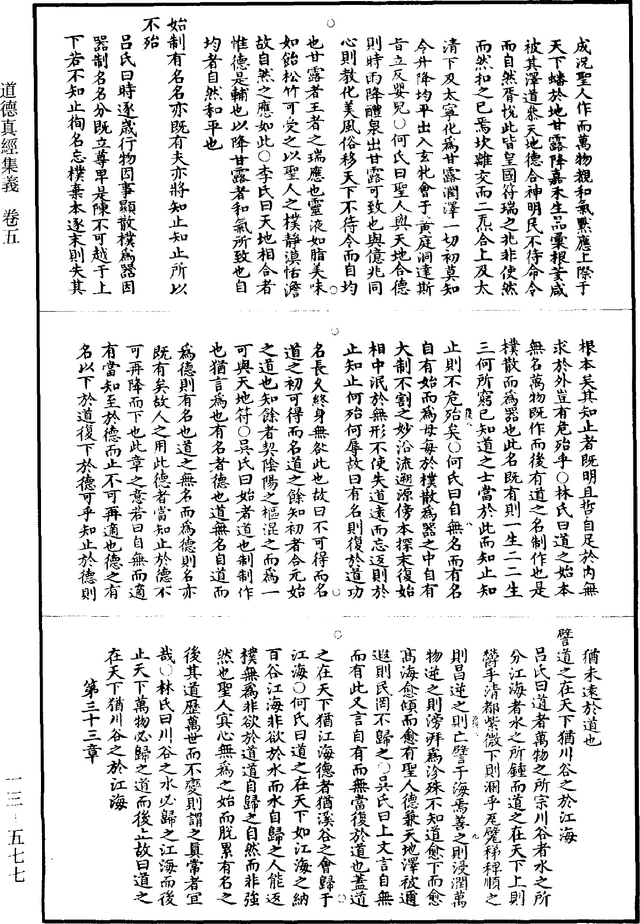 道德真經集義　卷五
成況聖人作而萬物覩和氣熏應上際于
天下蟠於地甘露降嘉禾生品彙根荄咸
被其澤道泰天地德合神明民不待命令
而自然胥悅此皆皇國符瑞之兆非使然
而然和之已焉坎離交而二炁合上及太
清下及太寧化為甘露潤澤一切初莫知
今升降均平出入玄牝會于黃庭洞達斯
旨立反嬰兒○何氏曰聖人與天地合德
則時雨降醴泉出甘露可致也與億兆同
心則教化美風俗移天下不待令而自均
也甘露者王者之瑞應也靈液如脂美味
如飴松竹可受之以聖人之樸靜漠恬澹
故自然之應如此○李氏曰天地相合者
惟德是輔也以降甘露者和氣所致也自
均者自然和平也
始制有名名亦既有夫亦將知止知止所以
不殆
呂氏曰時逐歲行物因事顯散樸為器因
器制名名分既立尊卑是陳不可越于上
下若不知止徇名忘樸棄本逐末則失其
根本矣其知止者既明且哲自足於內無
求於外豈有危殆乎○林氏曰道之始本
無名萬物既作而後有道之名制作也是
樸散而為器也此名既有則一生二二生
三何所窮已知道之士當於此而知止知
止則不危殆矣○何氏曰自無名而有名
自有始而為母每於樸散為器之中自有
大制不割之妙沿流遡源傍本探末復始
相中泯於無形不使失道遠而忘返則於
止知止何殆何辱故曰有名則復於道功
名長久終身無欲此也故曰不可得而名
道之初可得而名道之餘知初者合元始
之道也知餘者契陰陽之樞混之而為一
可與天地符○吳氏曰始者道也制制作
也猶言為也有名者德也道無名自道而
為德則有名也道之無名而為德則名亦
既有矣故人之用此德者當知止於德不
可再降而下也此章之意若曰自無而適
有當知至於德而止不可再適也德之有
名以下於道復下於德可乎知止於德則
猶未遠於道也
譬道之在天下猶川谷之於江海
呂氏曰道者萬物之所宗川谷者水之所
分江海者水之所鍾而道之在天下上則
欝乎清都紫微下則溷乎瓦甓稊稗順之
則昌逆之則亡譬于海焉善之則浸潤萬
物逆之則滂湃為沴殊不知道愈下而愈
高海愈傾而愈有聖人德兼天地澤被遐
遐則民罔不歸之○吳氏曰上文言自無
而有此又言自有而無當復於道也蓋道
之在天下猶江海德者猶溪谷之會歸于
江海○何氏曰道之在天下如江海之納
百谷江海非欲於水而水自歸之人能返
樸無為非欲於道道自歸之自然而非強
然也聖人寘心無為之始而脫累有名之
後其道歷萬世而不變則謂之真常者宜
哉○林氏曰川谷之水必歸之江海而後
止天下萬物必歸之道而後止故曰道之
在天下猶川谷之於江海
第三十三章
一三—五七七